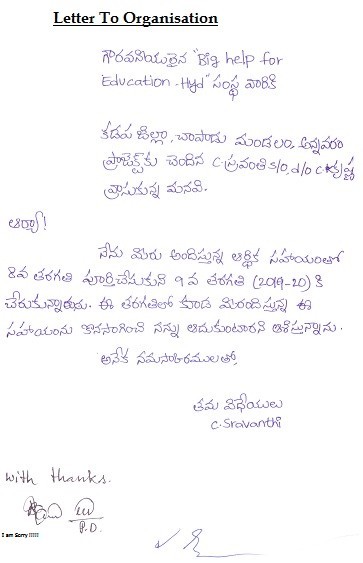 Letter To Organisation
గౌరవనీయులైన "Big help for
Education -Hyd" సంస్థ వారికి
కడప జిల్లా, చాపాడు మండలం, అన్నవరం
ప్రాజెక్ట్‌కు చెందిన C.స్రవంతి S/O, d/o C.కృష్ణ
వ్రాసుకున్న మనవి.
ఆర్యా!
నేను మీరు అందిస్తున్న ఆర్థిక సహాయంతో
8వ తరగతి పూర్తిచేసుకుని 9వ తరగతి (2019-20)కి
చేరుకున్నాను. ఈ తరగతిలో కూడ మీరందిస్తున్న ఈ
సహాయంను కొనసాగించి నన్ను ఆదుకుంటారని ఆశిస్తున్నాను.
అనేక నమస్కారములతో,
తమ విధేయులు
C.Sravanthi
with thanks.
P.D.
I am Sorry !!!!!